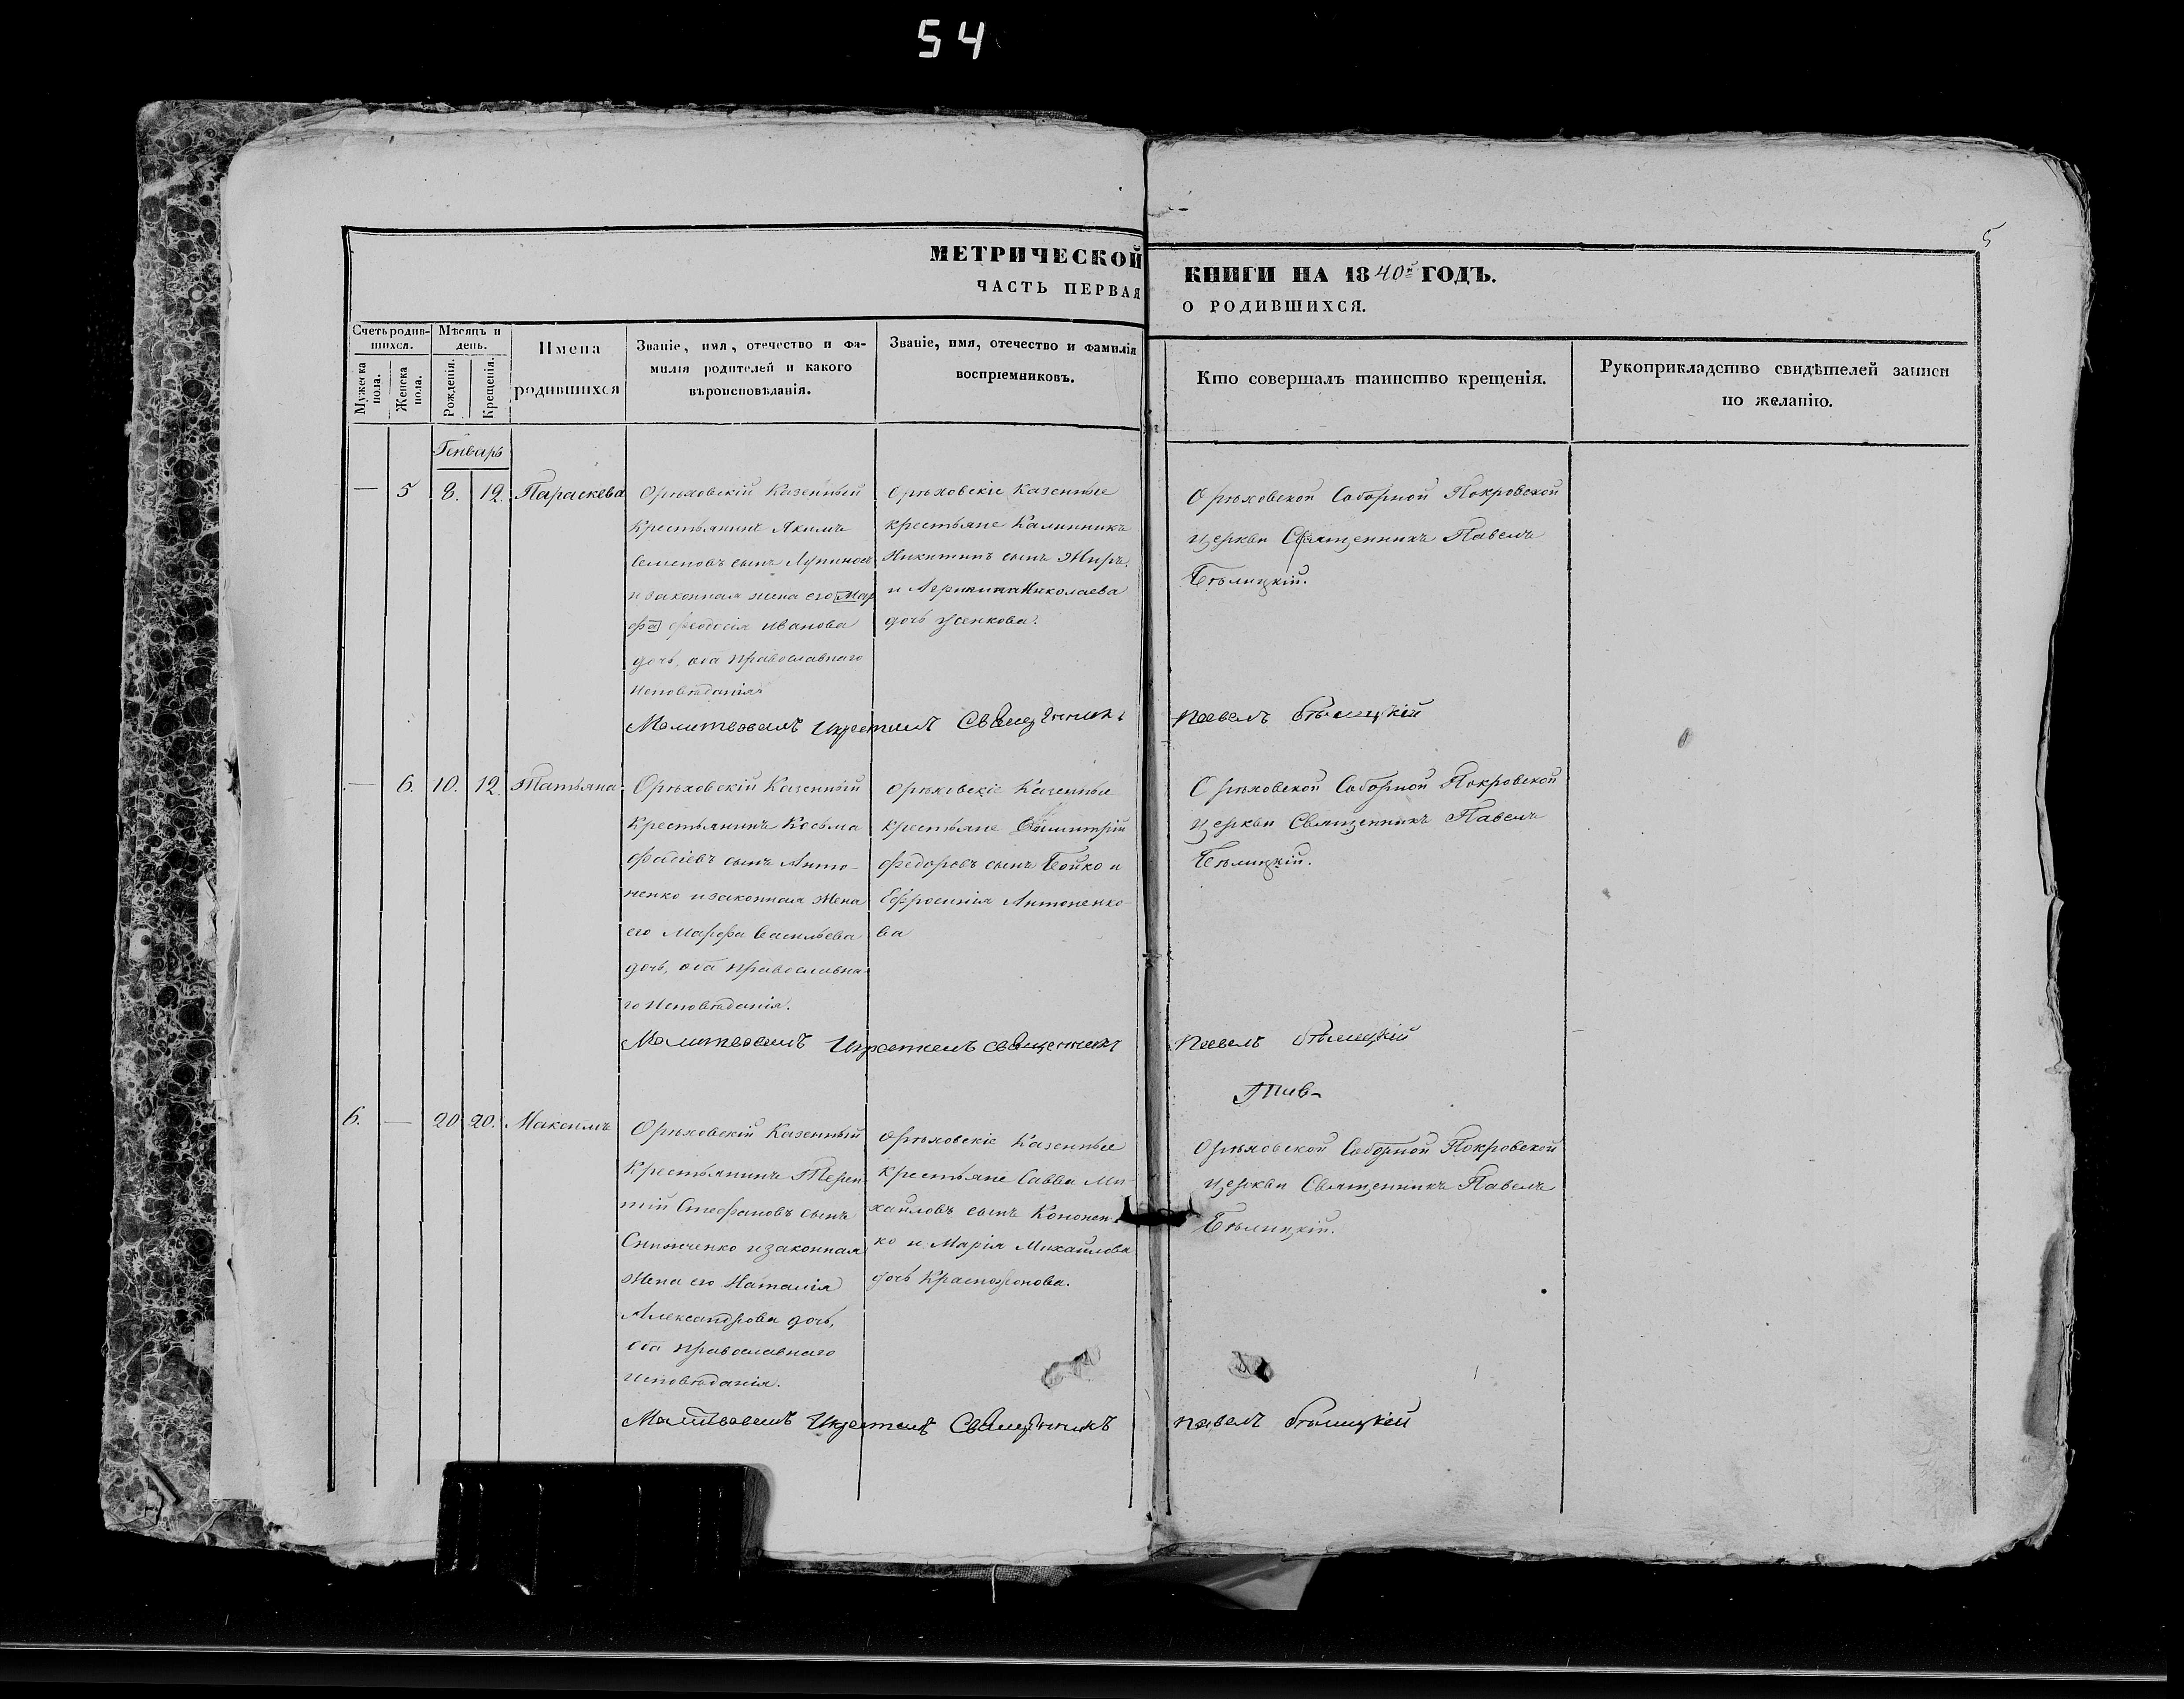 54
5
МЕТРИЧЕСКОЙ КНИГИ НА 1840й ГОДЪ.
ЧАСТЬ ПЕРВАЯ О РОДИВШИХСЯ.
Счетъ родив-
шихся.
Мужеска пола.
Женска пола.
Мѣсяцъ и
день.
Рожденія.
Крещенія.
Имена
родившихся
Званіе, имя, отечество и фа-
милія родителей и какого
вѣроисповѣданія.
Званіе, имя, отечество и фамилія
воспріемниковъ.
Кто совершалъ таинство крещенія.
Рукоприкладство свидѣтелей записи
по желанію.
Генварь
— 5 8. 12. Параскева
Орѣховскій Казенный
Крестьянинъ Якимъ
Семеновъ сынъ Лупиносъ
и законная жена его Мар
фа Феодосія Иванова
дочь, оба православнаго
исповѣданія
Орѣховскіе Казенные
крестьяне Калинникъ
Никитинъ сынъ Жиръ
и Агрипина Николаева
дочь
Орѣховской Соборной Покровской
церкви Священникъ Павелъ
Бѣлицкій.
Молитвовалъ и крестилъ Священникъ Павелъ Бѣлицкій
— 6. 10. 12 Татьяна
Орѣховскій Казенный
Крестьянинъ Косьма
Фадіевъ сынъ Анто-
ненко и законная жена
его Марфа Васильева
дочь, оба православна-
го исповѣданія.
Орѣховскіе Казенные
крестьяне Димитрій
Федоровъ сынъ Бойко и
Ефросинія Антоненко
ва
Орѣховской Соборной Покровской
церкви Священникъ Павелъ
Бѣлицкій.
Молитвовалъ и крестилъ священникъ Павелъ Бѣлицкій
6. — 20 20. Максимъ
Орѣховскій Казенный
Крестьянинъ Терен
тій Стефановъ сынъ
и законная
жена его Наталія
Александрова дочь,
оба православнаго
исповѣданія.
Орѣховскіе Казенные
крестьяне Савва Ми-
хайловъ сынъ Кононен-
ко и Марія Михайлова
дочь
Орѣховской Соборной Покровской
церкви Священникъ Павелъ
Бѣлицкій.
Молитвовалъ и крестилъ Священникъ Павелъ Бѣлицкій